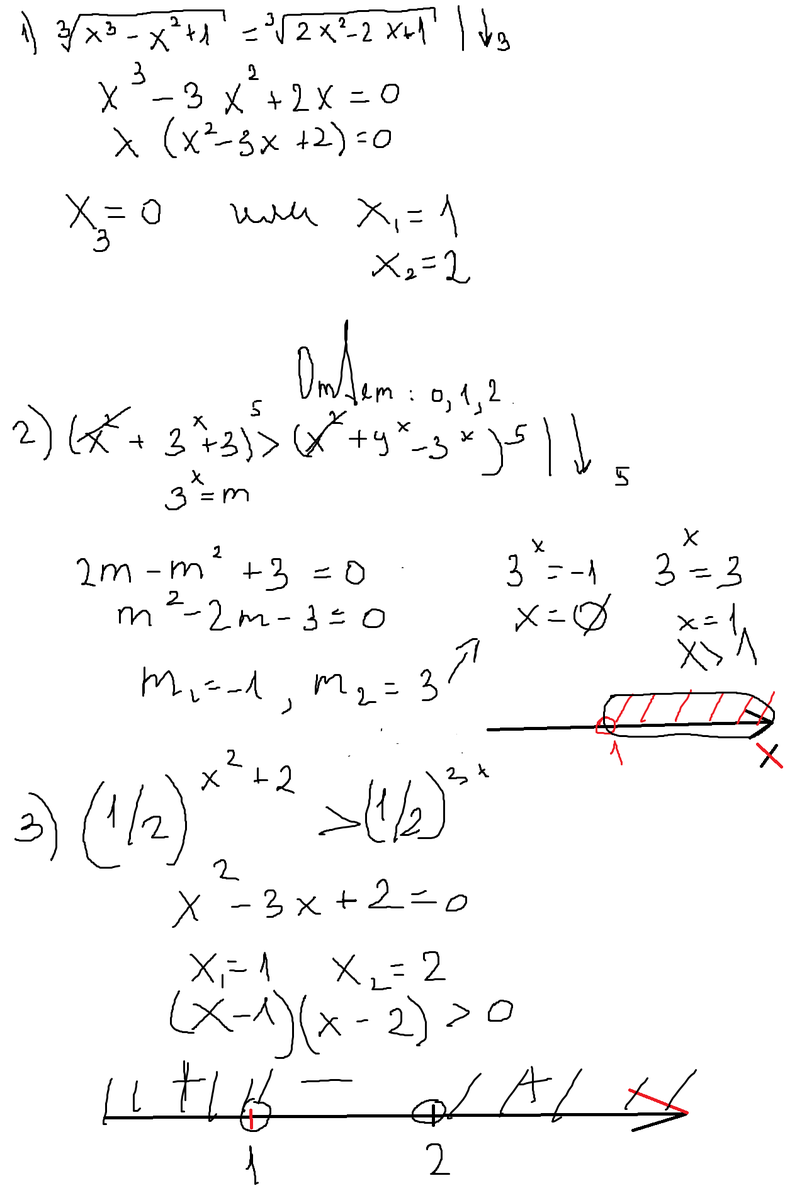 1) ∛(x³ - x² + 1) = ∛(2x² - 2x + 1) | ↓ 3
x³ - 3x² + 2x = 0
x (x² - 3x + 2) = 0
x₃ = 0 или x₁ = 1
x₂ = 2
Ответ: 0, 1, 2
2) (x² + 3ˣ + 3)⁵ > (x² + 9ˣ - 3ˣ)⁵ | ↓ 5
3ˣ = m
2m - m² + 3 = 0
m² - 2m - 3 = 0
m₁ = -1, m₂ = 3 ↗
3ˣ = -1 3ˣ = 3
x = ∅ x = 1
x > 1
1 x
3) (1/2)^(x² + 2) > (1/2)^(3x)
x² - 3x + 2 = 0
x₁ = 1 x₂ = 2
(x - 1)(x - 2) > 0
+ − +
1 2